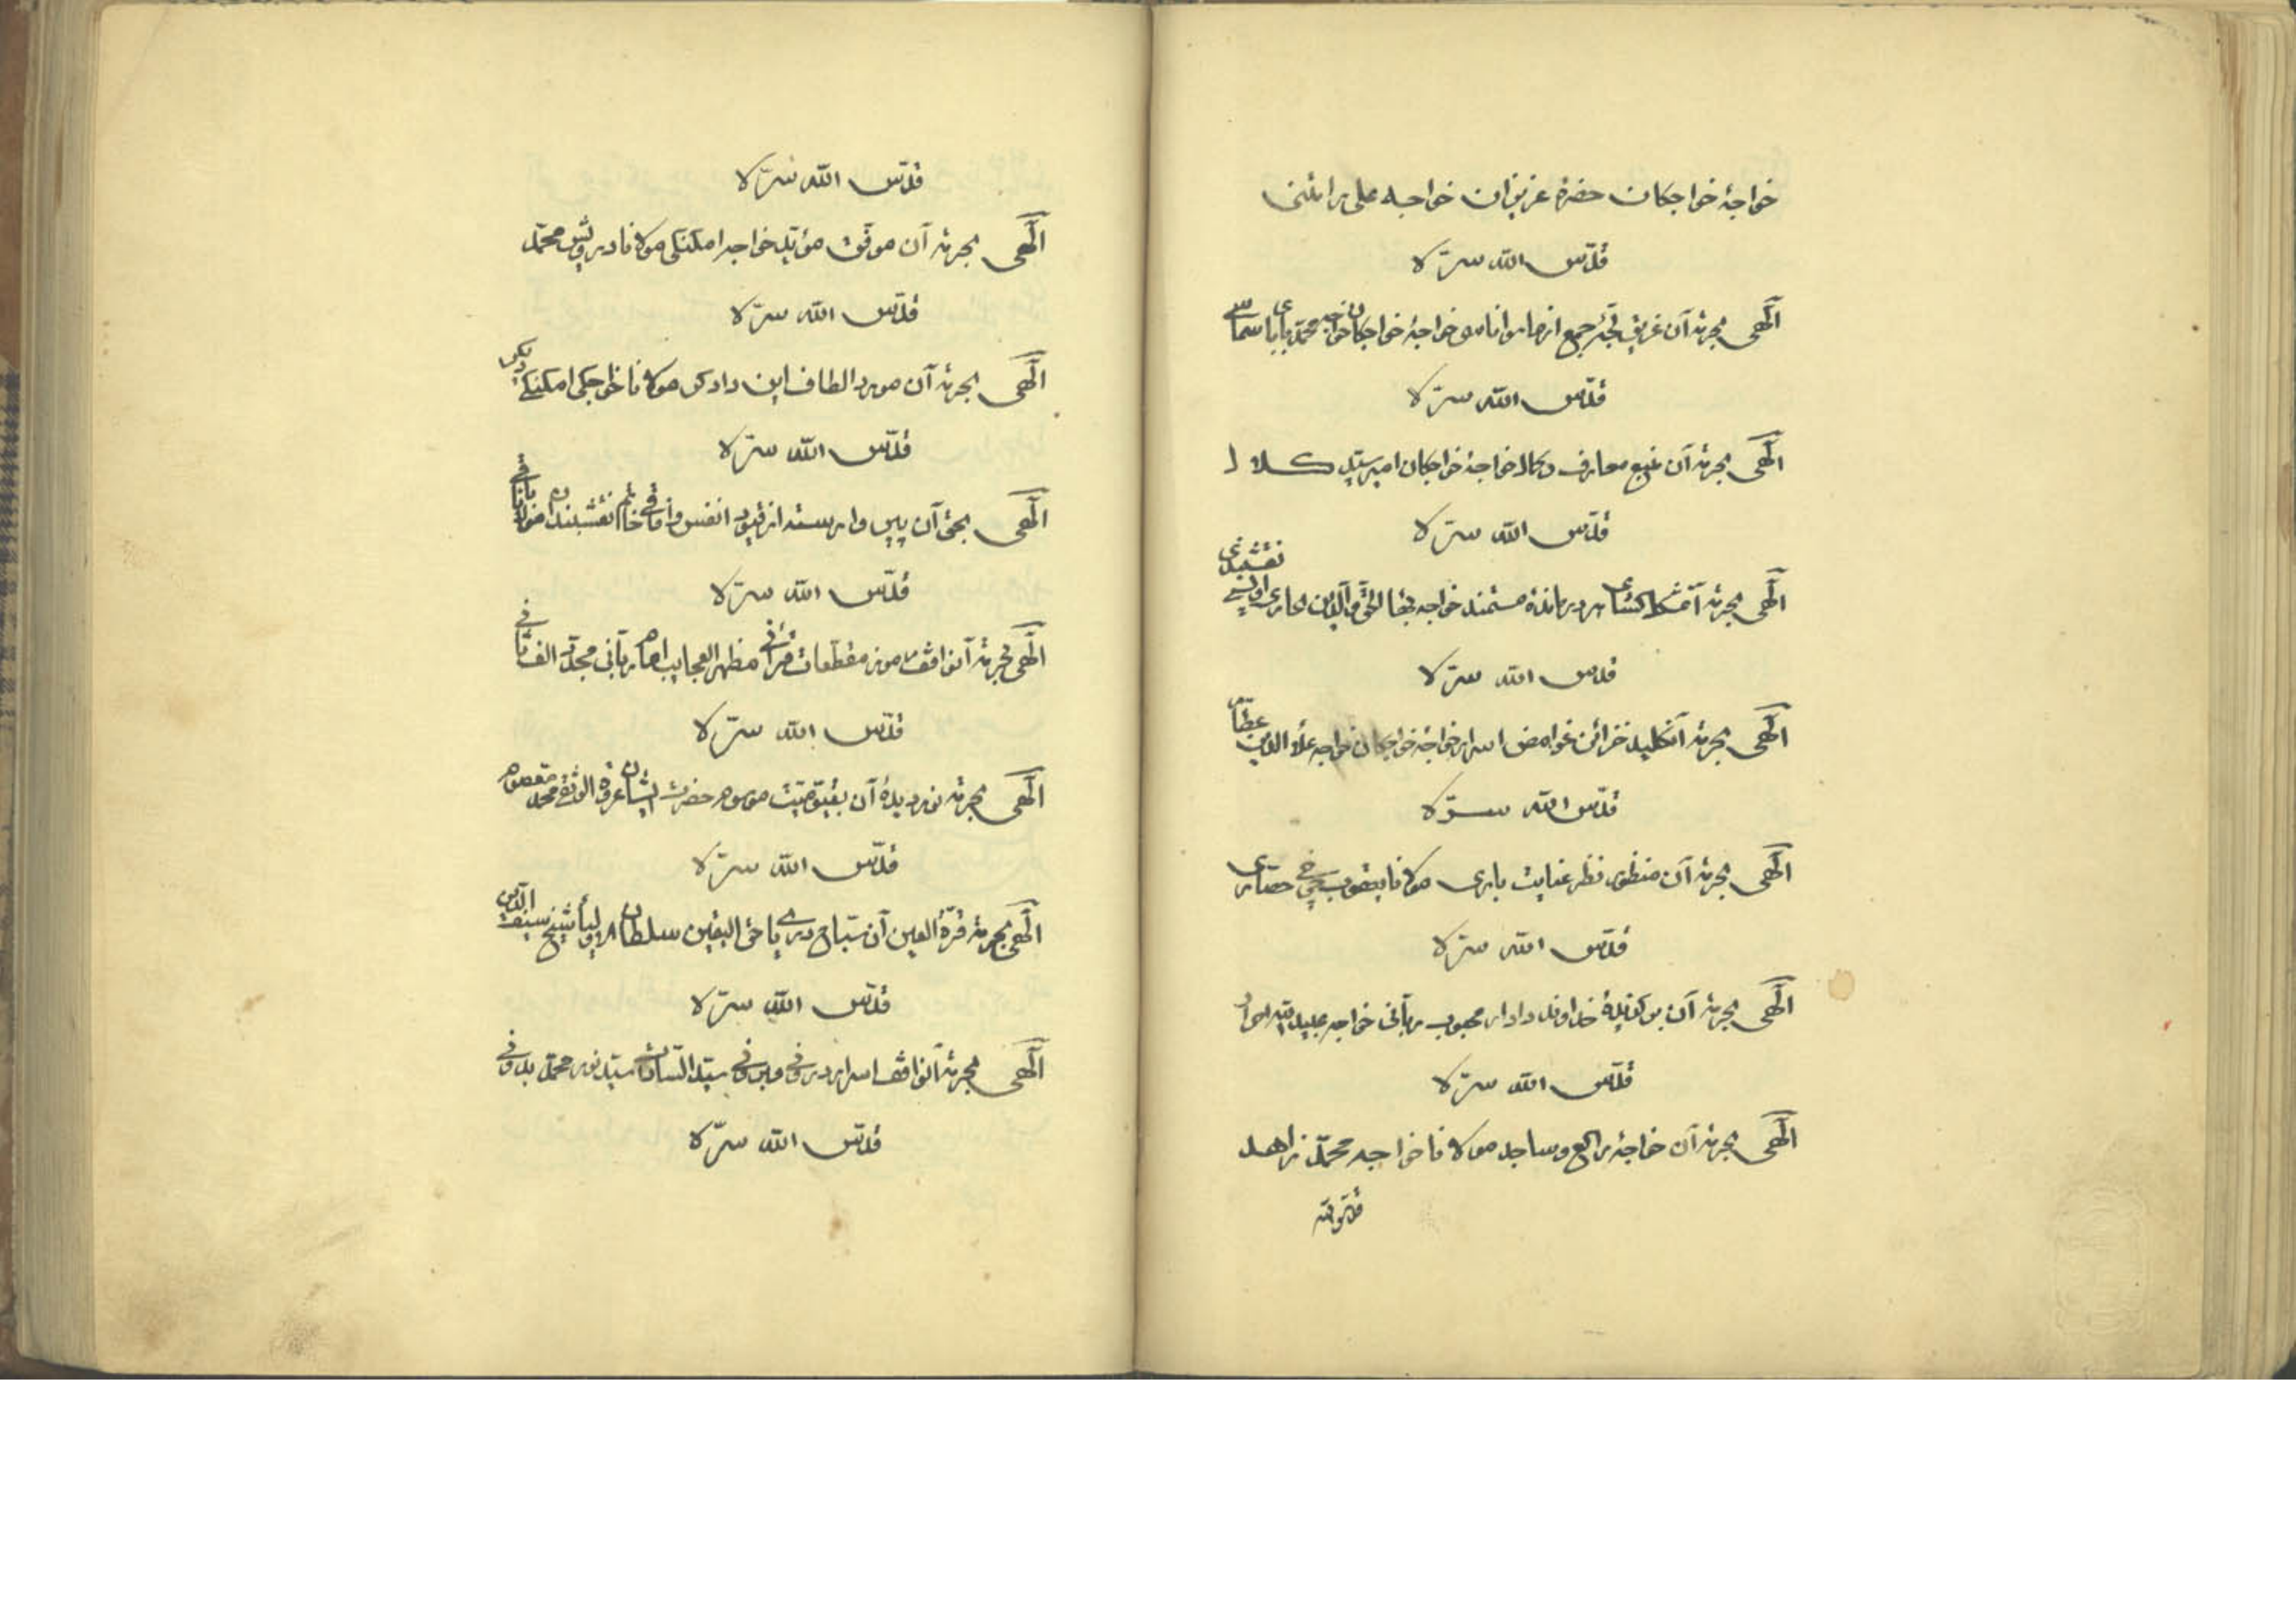 خواجهٔ خواجكان حضرة عزيزان خواجه على رامتنى
قدّس الله سرّه
الٓهى بحرمة آن غريق لجّهٔ جمع از ما خواجهٔ خواجكان خواجه محمّد باباى سماسى
قدّس الله سرّه
الٓهى بحرمة آن منبع معارف وكمال خواجهٔ خواجكان امير سيّد كلال
قدّس الله سرّه
الٓهى بحرمة آن مشكل كشاى هر درماندهٔ مستمند خواجه بهاء الحقّ والدّين نقشبند
قدّس الله سرّه
الٓهى بحرمة آنكليد خزائن غوامض اسرار خواجهٔ خواجكان خواجه علاء الدّين عطّار
قدّس الله سرّه
الٓهى بحرمة آن منظور نظر عنايت بارى مولانا يعقوب چرخى حصارى
قدّس الله سرّه
الٓهى بحرمة آن بركزيدهٔ خداوند دادار محبوب ربّانى خواجه عبيد الله احرار
قدّس الله سرّه
الٓهى بحرمة آن خواجهٔ راكع وساجد مولانا خواجه محمّد زاهد
قدّس الله
قدّس الله سرّه
الٓهى بحرمة آن موفّق مؤيّد خواجه امكنكى مولانا درويش محمّد
قدّس الله سرّه
الٓهى بحرمة آن مورد الطاف اين دادكر مولانا خواجكى امكنكى
قدّس الله سرّه
الٓهى بحقّ آن پير وارسته از قيود انفس وآفاقى خاتم نقشبند
قدّس الله سرّه
الٓهى بحرمة آنواقف رموز مقطّعات قرآنى مظهر العجايب امام ربّانى مجدّد الف ثانى
قدّس الله سرّه
الٓهى بحرمة نور ديدهٔ آن حضرت ايشان عروة الوثقى محمّد معصوم
قدّس الله سرّه
الٓهى بحرمة قرّة العين آن سبّاح درياى حقّ اليقين سلطان الاوليأ شيخ سيف الدّين
قدّس الله سرّه
الٓهى بحرمة آنواقف اسرار درونى وبرونى سيّد السّادات سيّد نور محمّد بدونى
قدّس الله سرّه